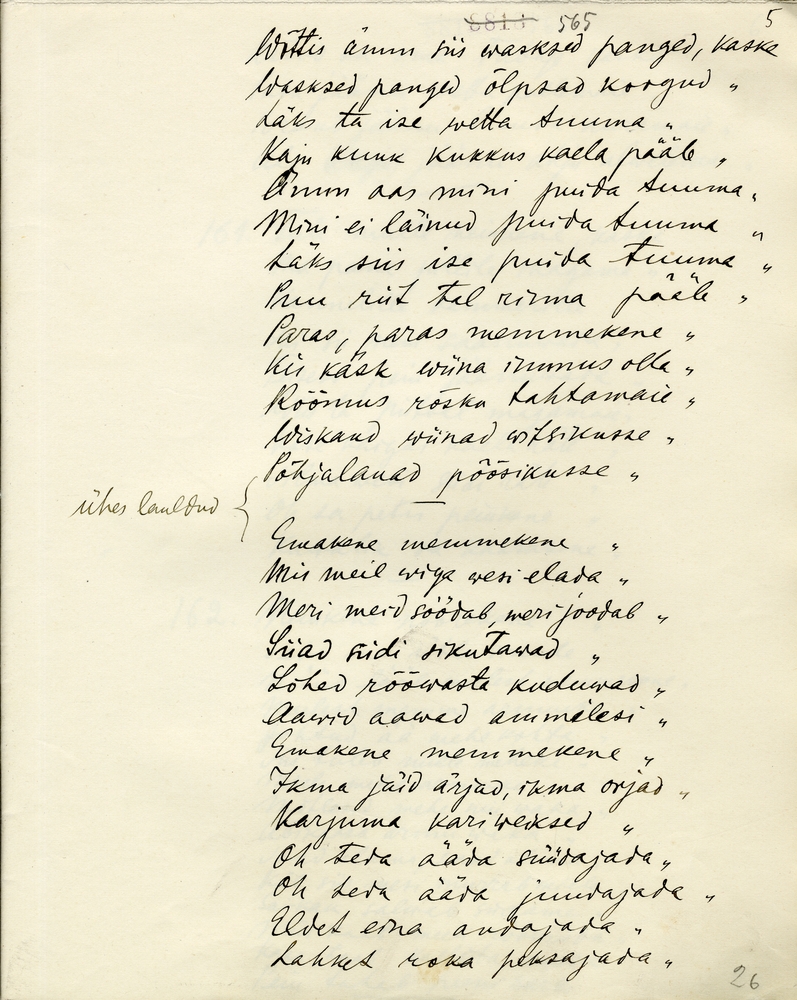 565
5
Wõttis ämm siis wasksed panged, kaske
Wasksed panged õlpsad koogud "
Läks ta ise wetta tuuma "
Kaju kuuk kukkus kaela pääle "
Ämm aas mini puida tuuma "
Mini ei läinud puida tuuma "
Läks siis ise puida tuuma "
Puu riit tal rinna pääle "
Paras, paras memmekene "
Kis käsk wiina immus olla "
Rõõmus rõsku tahtamaie "
Wiskaud wiinad witsikusse "
Põhjalauad põõsikusse "
ühes lauldud {
Emakene memmekene "
Mis meil wiga wesi elada "
Meri meid söödab, meri joodab "
Siiad siidi sikutawad "
Lõhed rõõwasta kuduwad "
Aawid aawad ammelesi "
Emakene memmekene "
Ikma jäid ärjad, ikma orjad "
Karjuma kariweiksed "
Oh teda ääda süüdajada "
Oh teda ääda juudajada "
Eldet eina andajada "
Lahket roka peksajada "
26